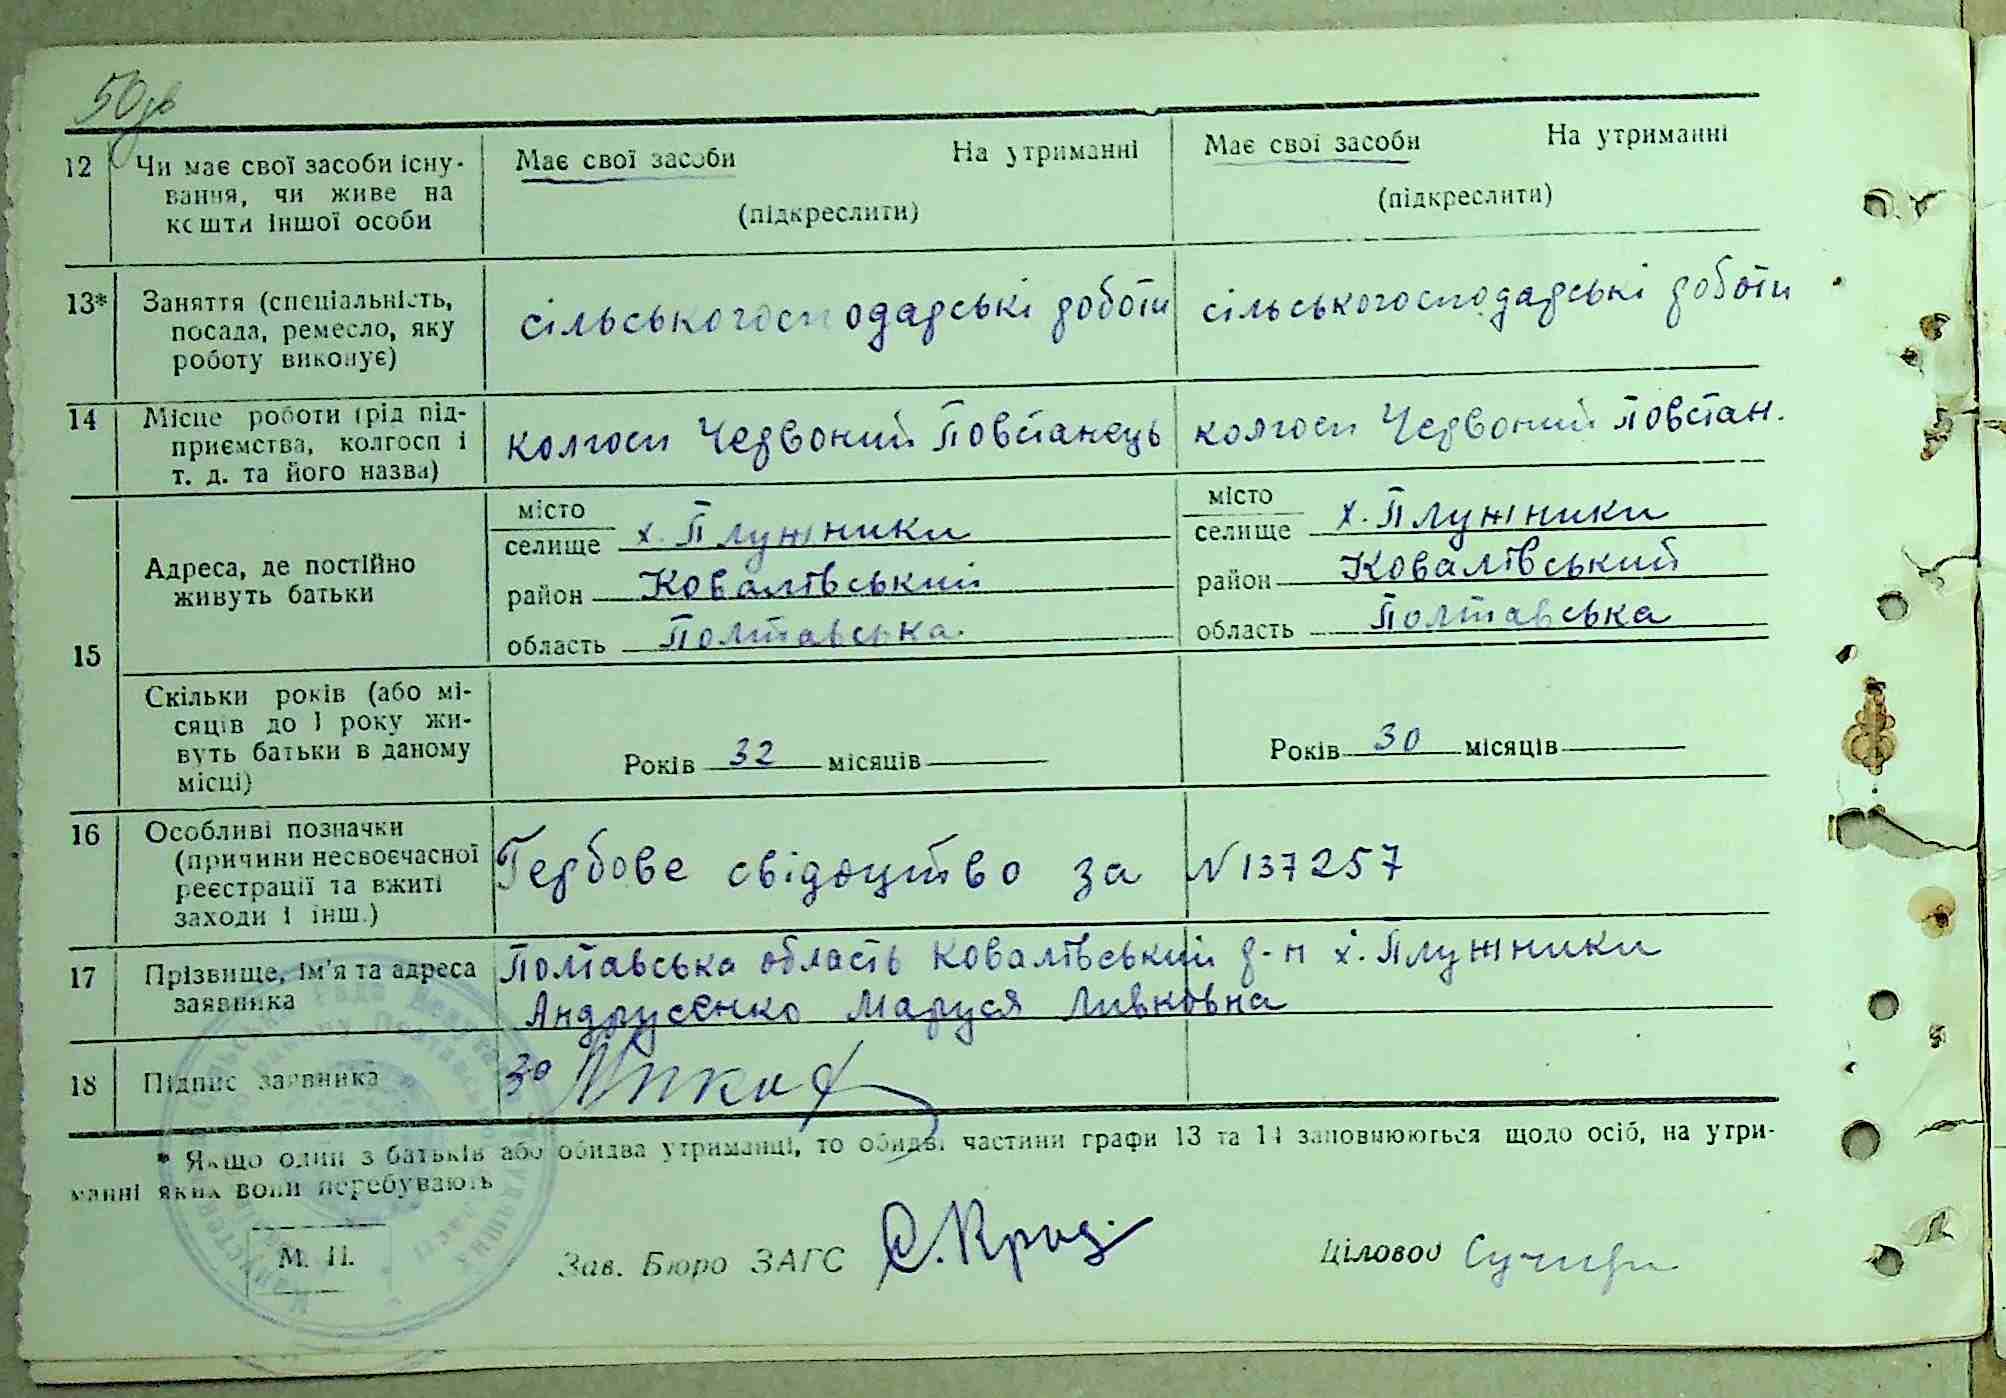 50зв
12 Чи має свої засоби існу- Має свої засоби На утриманні Має свої засоби На утриманні
вання, чи живе на
кошти іншої особи (підкреслити) (підкреслити)
13* Заняття (спеціальність,
посада, ремесло, яку сільськогосподарські роботи сільськогосподарські роботи
роботу виконує)
14 Місце роботи (рід під-
приємства, колгосп і колгосп Червоний Повстанець колгосп Червоний Повстан.
т. д. та його назва)
15 Адреса, де постійно
живуть батьки
місто місто
селище х. Плужники селище х. Плужники
район Ковалівський район Ковалівський
область Полтавська область Полтавська
Скільки років (або мі-
сяців до 1 року жи-
вуть батьки в даному Років 32 місяців Років 30 місяців
місці)
16 Особливі позначки
(причини несвоєчасної Гербове свідоцтво за N 137257
реєстрації та вжиті
заходи і інш.)
17 Прізвище, ім'я та адреса Полтавська область Ковалівський р-н х. Плужники
заявника Андрусенко Маруся Ливковна
18 Підпис заявника
* Якщо один з батьків або обидва утриманці, то обидві частини графи 13 та 14 заповнюються щодо осіб, на утри-
манні яких вони перебувають
М. П. Зав. Бюро ЗАГС Діловод